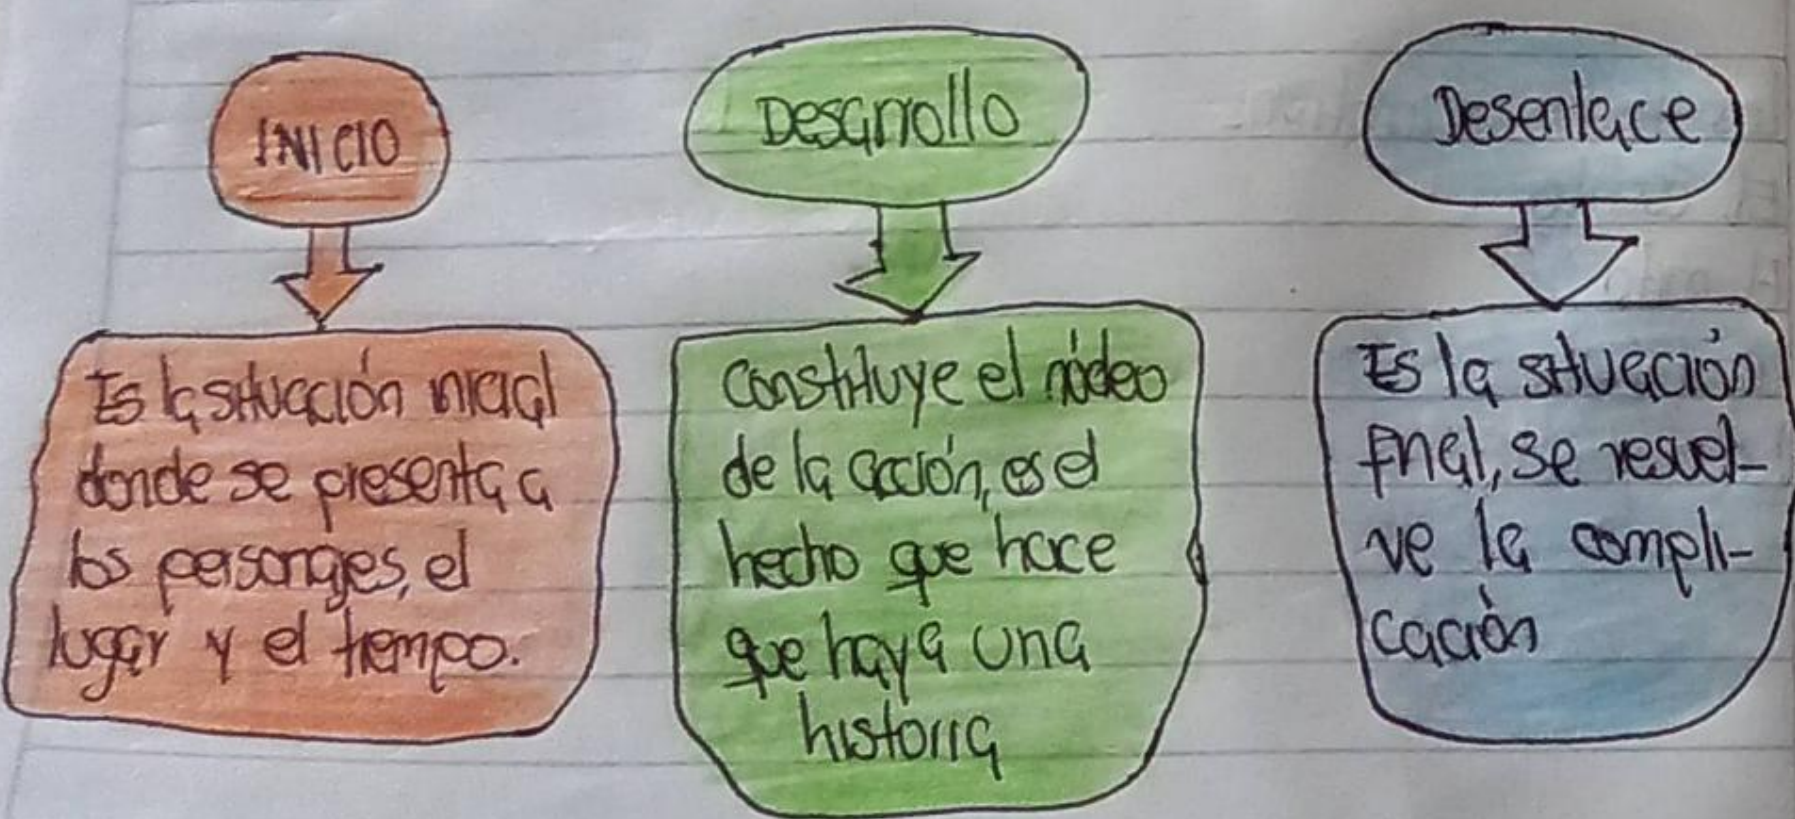 INICIO
Es la situación inicial
donde se presenta a
los personajes, el
lugar y el tiempo.
Desarrollo
Constituye el núcleo
de la acción, es el
hecho que hace
que haya una
historia
Desenlace
Es la situación
final, se resuel-
ve la compli-
cación